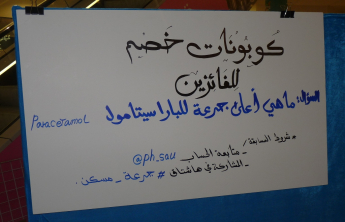 كوبونات خصم
للفائزين
السؤال: ما هي أعلى جرعة للباراسيتامول
Paracetamol
* شروط المسابقة /
_ متابعة الحساب @ph_sau
_ المشاركة في هاشتاق # جرعة _ مسكن.